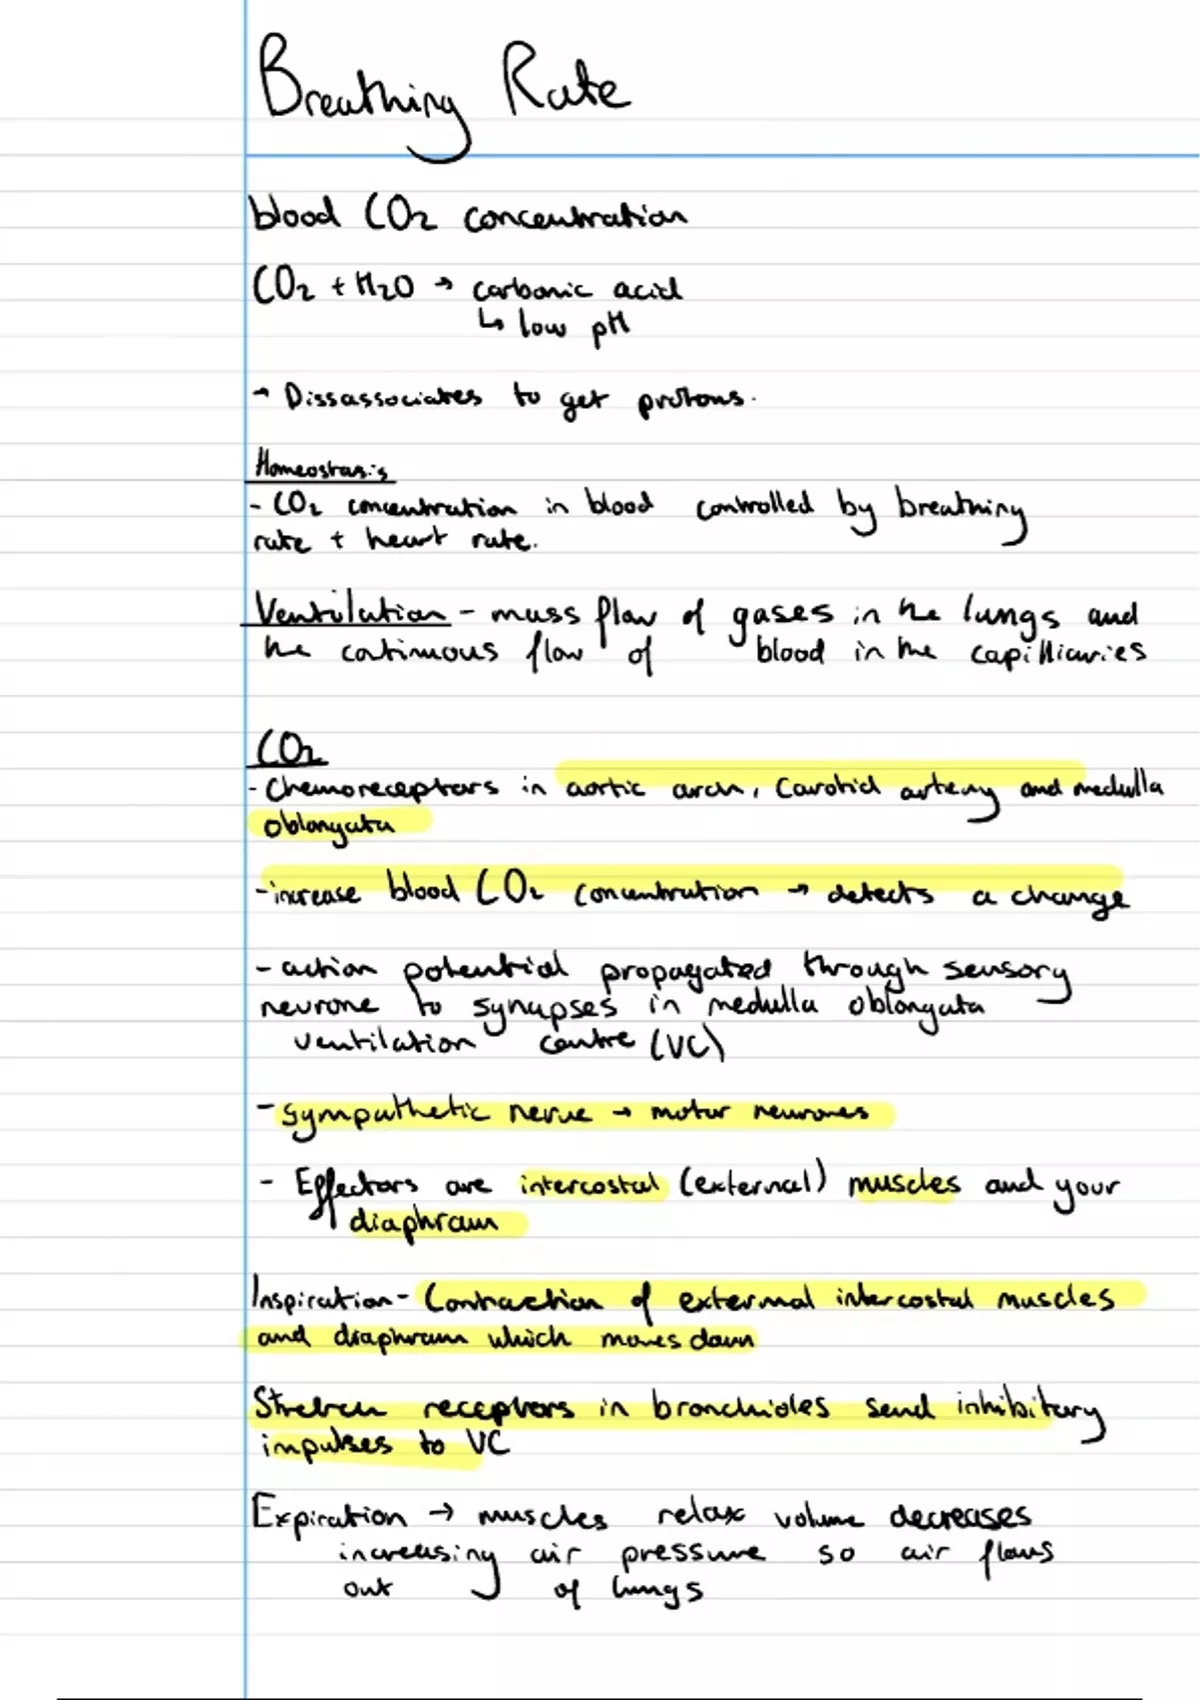 Breathing Rate
blood CO2 concentration
CO2 + H2O → carbonic acid
↳ low pH
→ Dissassociates to get protons.
Homeostasis
- CO2 concentration in blood controlled by breathing
rate + heart rate.
Ventilation - mass flow of gases in the lungs and
the continuous flow of blood in the capilliaries
CO2
- Chemoreceptors in aortic arch, Carotid artery and medulla
oblongata
- increase blood CO2 concentration → detects a change
- action potential propagated through sensory
neurone to synapses in medulla oblongata
ventilation centre (VC)
- sympathetic nerve → motor neurones
- Effectors are intercostal (external) muscles and your
diaphram
Inspiration - Contraction of external intercostal muscles
and diaphram which moves down
Stretch receptors in bronchioles send inhibitory
impulses to VC
Expiration → muscles relax volume decreases
increasing air pressure so air flows
out of lungs